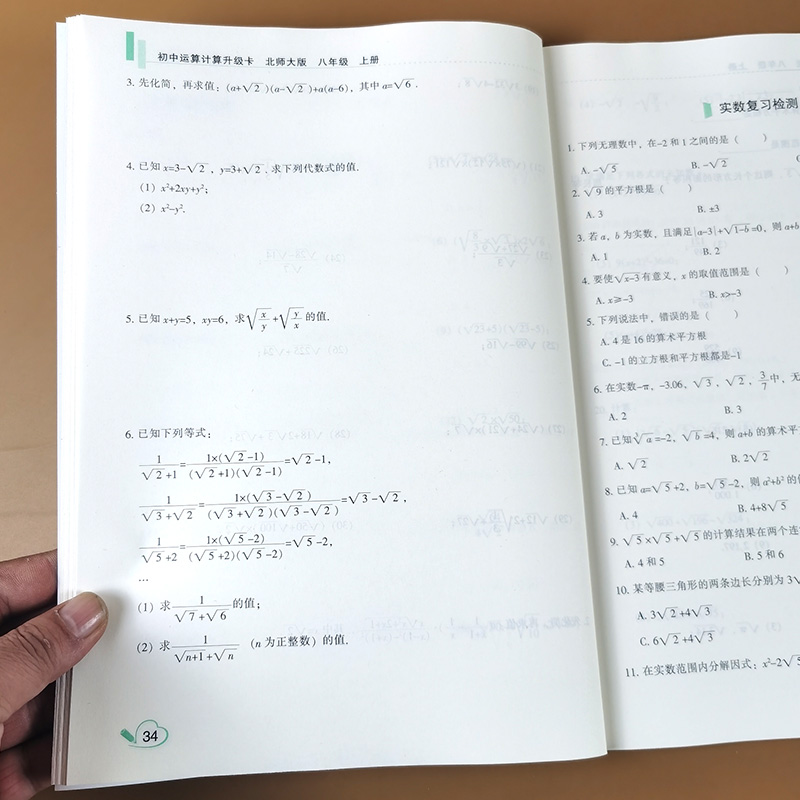 初中运算计算升级卡 北师大版 八年级 上册
3. 先化简，再求值：(a+√2)(a-√2)+a(a-6)，其中 a=√6.
4. 已知 x=3-√2，y=3+√2. 求下列代数式的值.
(1) x²+2xy+y²；
(2) x²-y².
5. 已知 x+y=5，xy=6，求√(x/y)+√(y/x)的值.
6. 已知下列等式：
1/(√2+1)=1×(√2-1)/((√2+1)(√2-1))=√2-1，
1/(√3+√2)=1×(√3-√2)/((√3+√2)(√3-√2))=√3-√2，
1/(√5+2)=1×(√5-2)/((√5+2)(√5-2))=√5-2，
…
(1) 求1/(√7+√6)的值；
(2) 求1/(√(n+1)+√n) (n 为正整数) 的值.
34
实数复习检测
1. 下列无理数中，在-2 和 1 之间的是 ( )
A. -√5 B. -√2
2. √9 的平方根是 ( )
A. 3 B. ±3
3. 若 a，b 为实数，且满足|a-3|+√(1-b)=0，则 a+b
A. 1 B. 2
4. 要使√(x-3)有意义，x 的取值范围是 ( )
A. x≥-3 B. x>-3
5. 下列说法中，错误的是 ( )
A. 4 是 16 的算术平方根
C. -1 的立方根和平方根都是-1
6. 在实数-π，-3.06，√3，√2，3/7中，无
A. 2 B. 3
7. 已知∛a=-2，√b=4，则 a+b 的算术平方
A. √2 B. 2√2
8. 已知 a=√5+2，b=√5-2，则 a²+b² 的
A. 4 B. 4+8√5
9. √5×√5+√5 的计算结果在两个连
A. 4 和 5 B. 5 和 6
10. 某等腰三角形的两条边长分别为 3√
A. 3√2+4√3
C. 6√2+4√3
11. 在实数范围内分解因式：x²-2√5